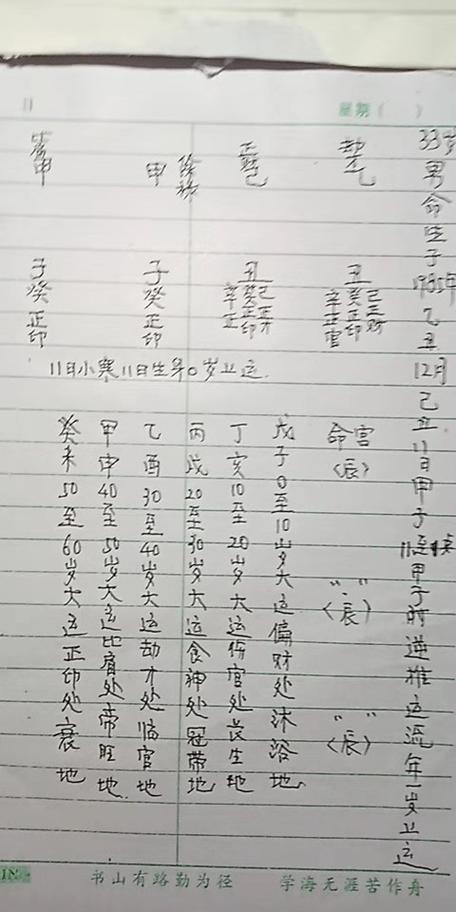 星期( )
33岁男命生于1985年乙丑12月己丑11日甲子11点甲子时逆推运流年一岁上运
劫乙 丑 己正财 癸正印 辛正官
命宫〈辰〉 〃〃〈辰〉 〃〃〈辰〉
正财己 丑 己正才 癸正印 辛正
甲 子癸正印
甲 子癸正印
11日小寒11日生早0岁上运.
戊子0至10岁大运偏财处沐浴地.
丁亥10至20岁大运伤官处长生地
丙戌20至30岁大运食神处冠带地
乙酉30至40岁大运劫才处临官地
甲申40至50岁大运比肩处帝旺地.
癸未50至60岁大运正印处衰地
书山有路勤为径 学海无涯苦作舟